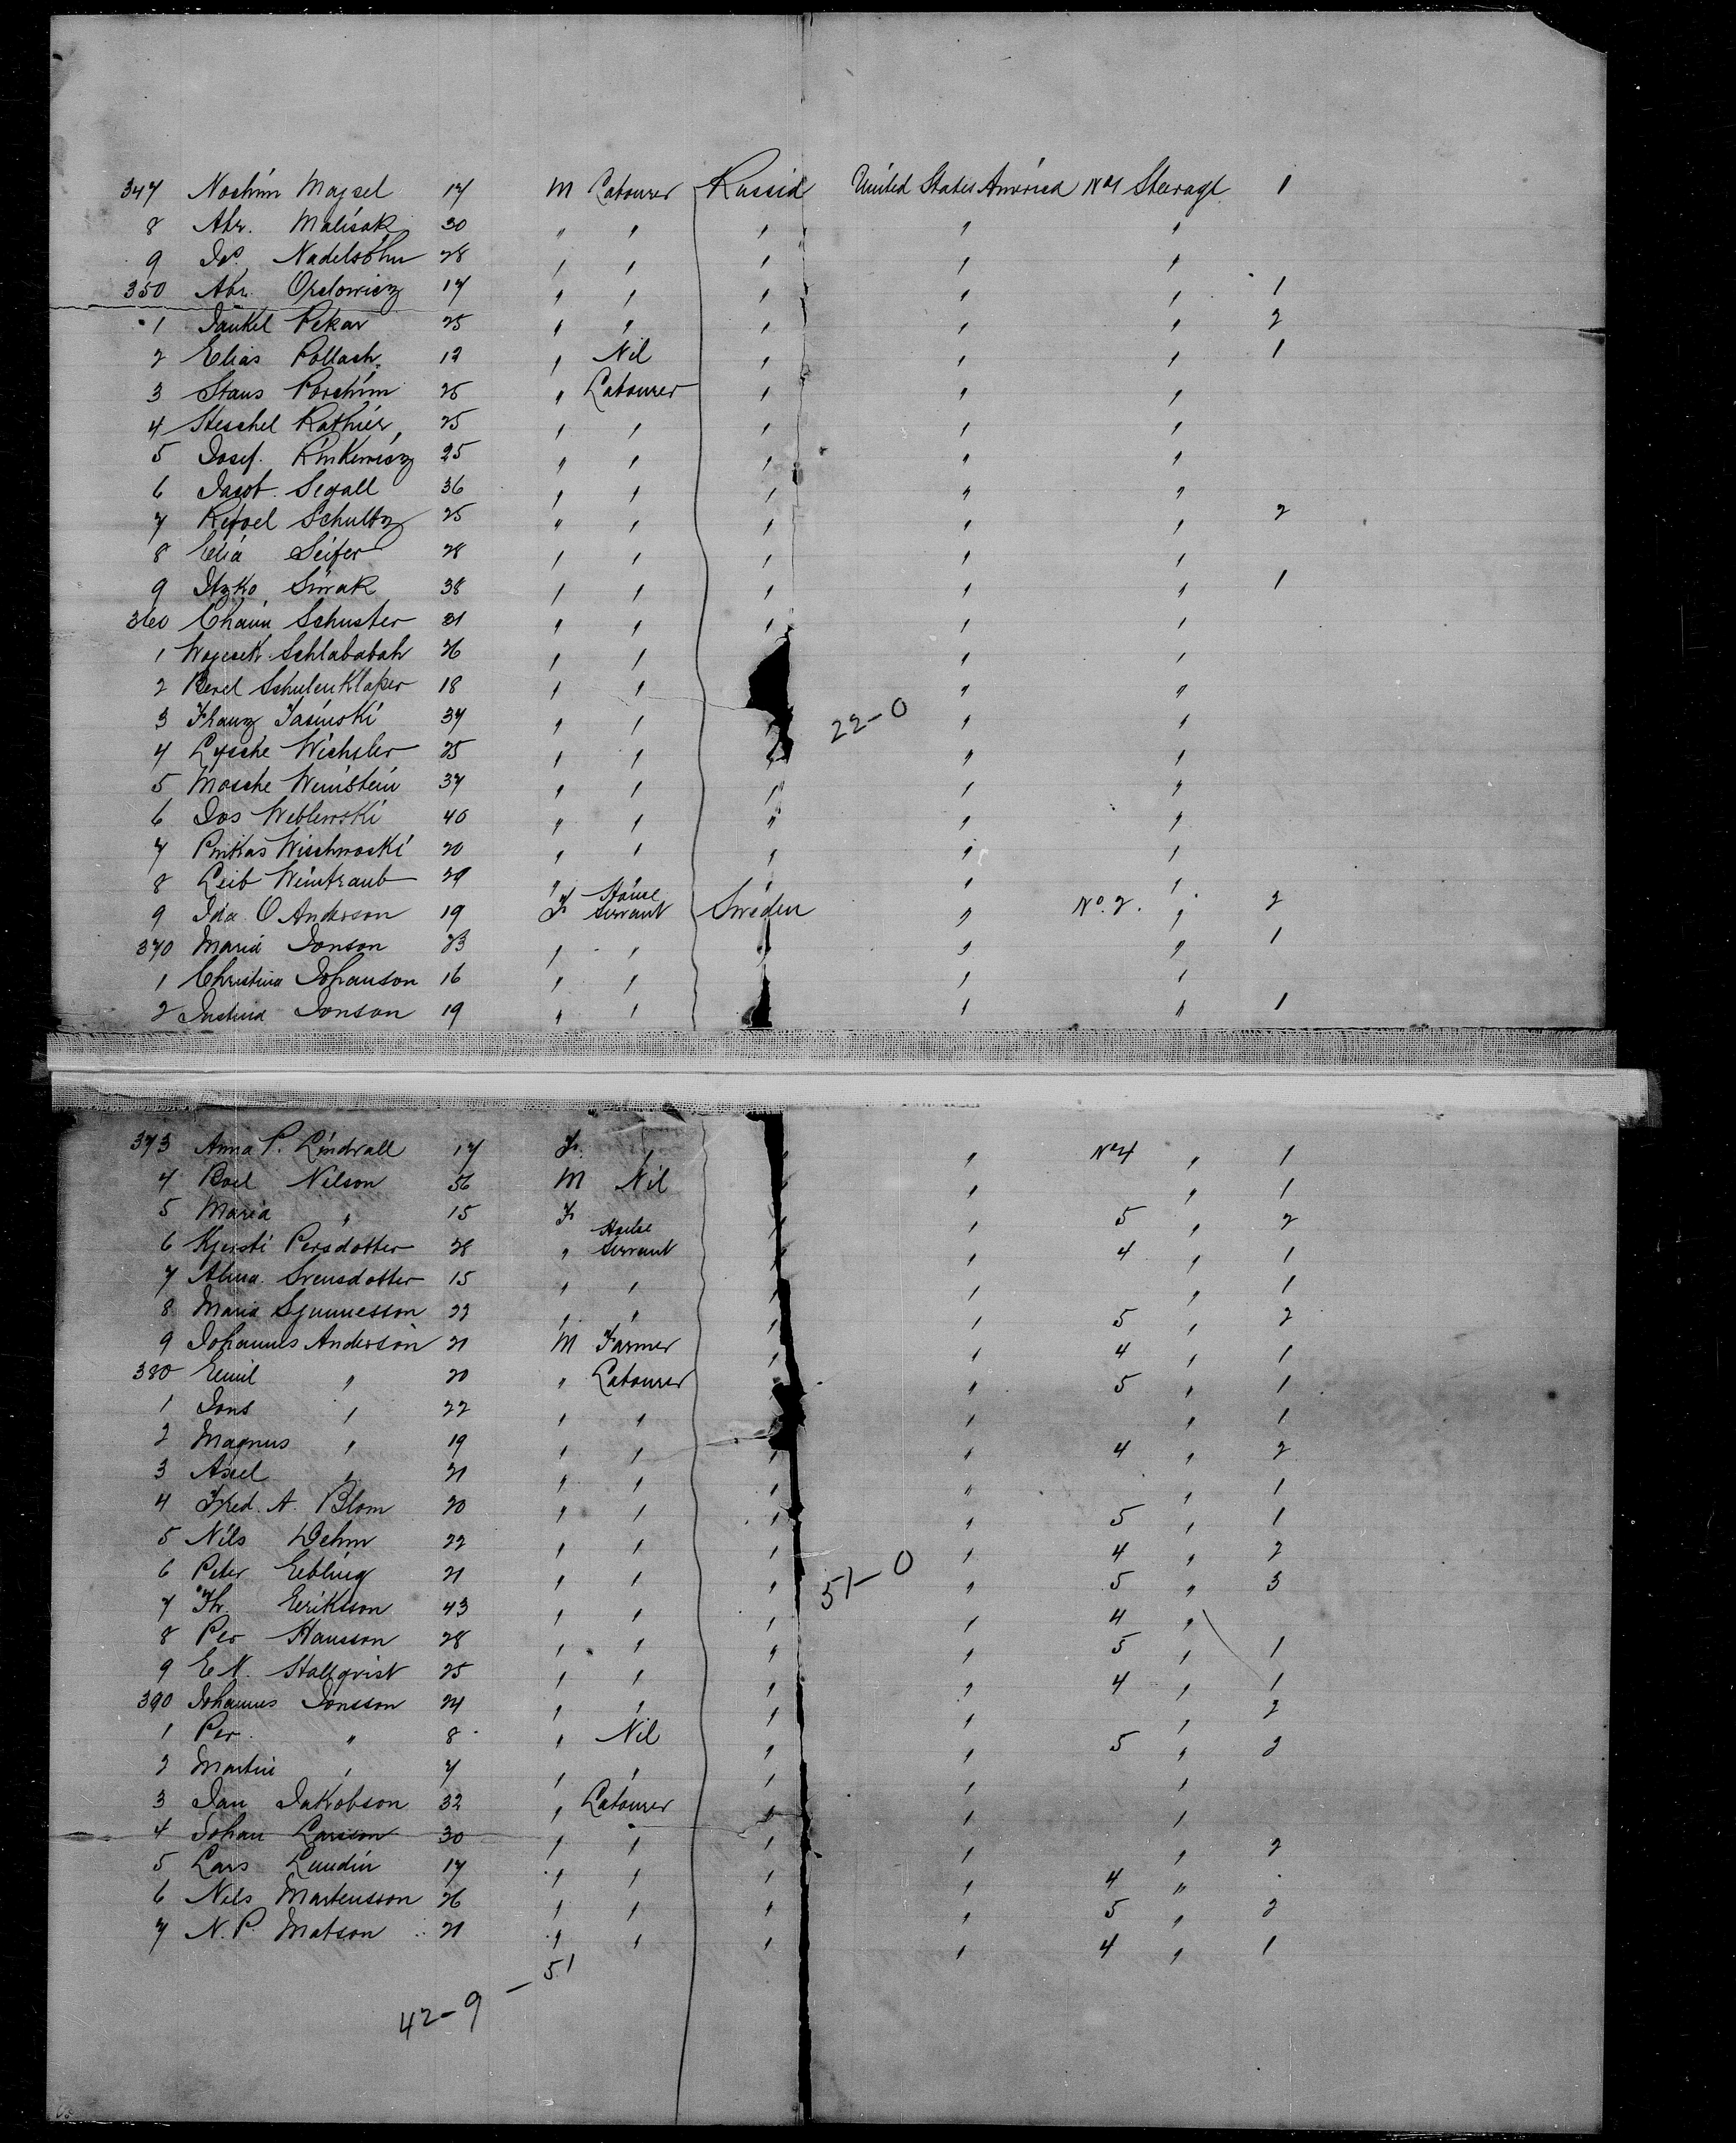 347 Nochim Majsel 17 M Labourer Russia United States America No 1 Steerage 1
8 Abr. Malisak 30 " " " " "
9 Jos. Nadelsohn 28 " " " " "
350 Abr. Orelowicz 17 " " " " " 1
1 Jankel Pekar 25 " " " " " 2
2 Elias Pollach 12 " Nil " " " 1
3 Stans Porchim 25 " Labourer " " "
4 Heschel Rathier 25 " " " " "
5 Josef. Rinkewicz 25 " " " " "
6 Jacob Segall 36 " " " " "
7 Schultz 25 " " " " " 2
8 Elia Seifer 28 " " " " "
9 Itzko Siwak 38 " " " " " 1
360 Chaim Schuster 31 " " " " "
1 Schlababah 26 " " " "
2 Berel Schulenklaper 18 " " " "
3 Franz Jasinski 37 " " " " "
22-0
4 Lysche Wichsler 25 " " " " "
5 Mosche Weinstein 37 " " " " "
6 Jos Weblewski 40 " " " " "
7 Pinkas Wischnoski 20 " " " " "
8 Leib Weintraub 29 " " " " "
9 Ida O Anderson 19 F House Servant Sweden " No. 2. " 2
370 Maria Jonson 23 " " " " " 1
1 Christina Johanson 16 " " " " "
2 Justina Jonson 19 " " " " 1
373 Anna P. Lindvall 17 F. " " " No 4 " 1
4 Boel Nilson 56 M Nil " " 1
5 Maria " 15 F " " 5 " 2
6 Kjersti Persdotter 28 " House Servant " " 4 " 1
7 Alma Svensdotter 15 " " " " " 1
8 Maria Sjunnesson 22 " " " " 5 " 2
9 Johannes Anderson 21 M Farmer " " 4 " 1
380 Emil " 20 " Labourer " 5 " 1
1 Jons " 22 " " " " 1
2 Magnus " 19 " " " " 4 " 2
3 Axel " 21 " " " " " 1
4 Fred. A. Blom 20 " " " " 5 " 1
5 Nils Dehm 22 " " " " 4 " 2
6 Peter Eebling 21 " " " " 5 " 3
51-0
7 Th. Eeriksson 43 " " " " 4 "
8 Per Hansson 28 " " " " 5 " 1
9 E N. Hallqvist 25 " " " " 4 " 1
390 Johannes Jonsson 24 " " " " " 2
1 Per " 8 " Nil " " 5 " 2
2 Martin " 7 " " " " "
3 Jan Jakobson 32 " Labourer " " "
4 Johan Larson 30 " " " " " 2
5 Lars Lundin 17 " " " " 4 "
6 Nils Martensson 26 " " " " 5 " 2
7 N. P. Matson 21 " " " " 4 " 1
42-9 - 51